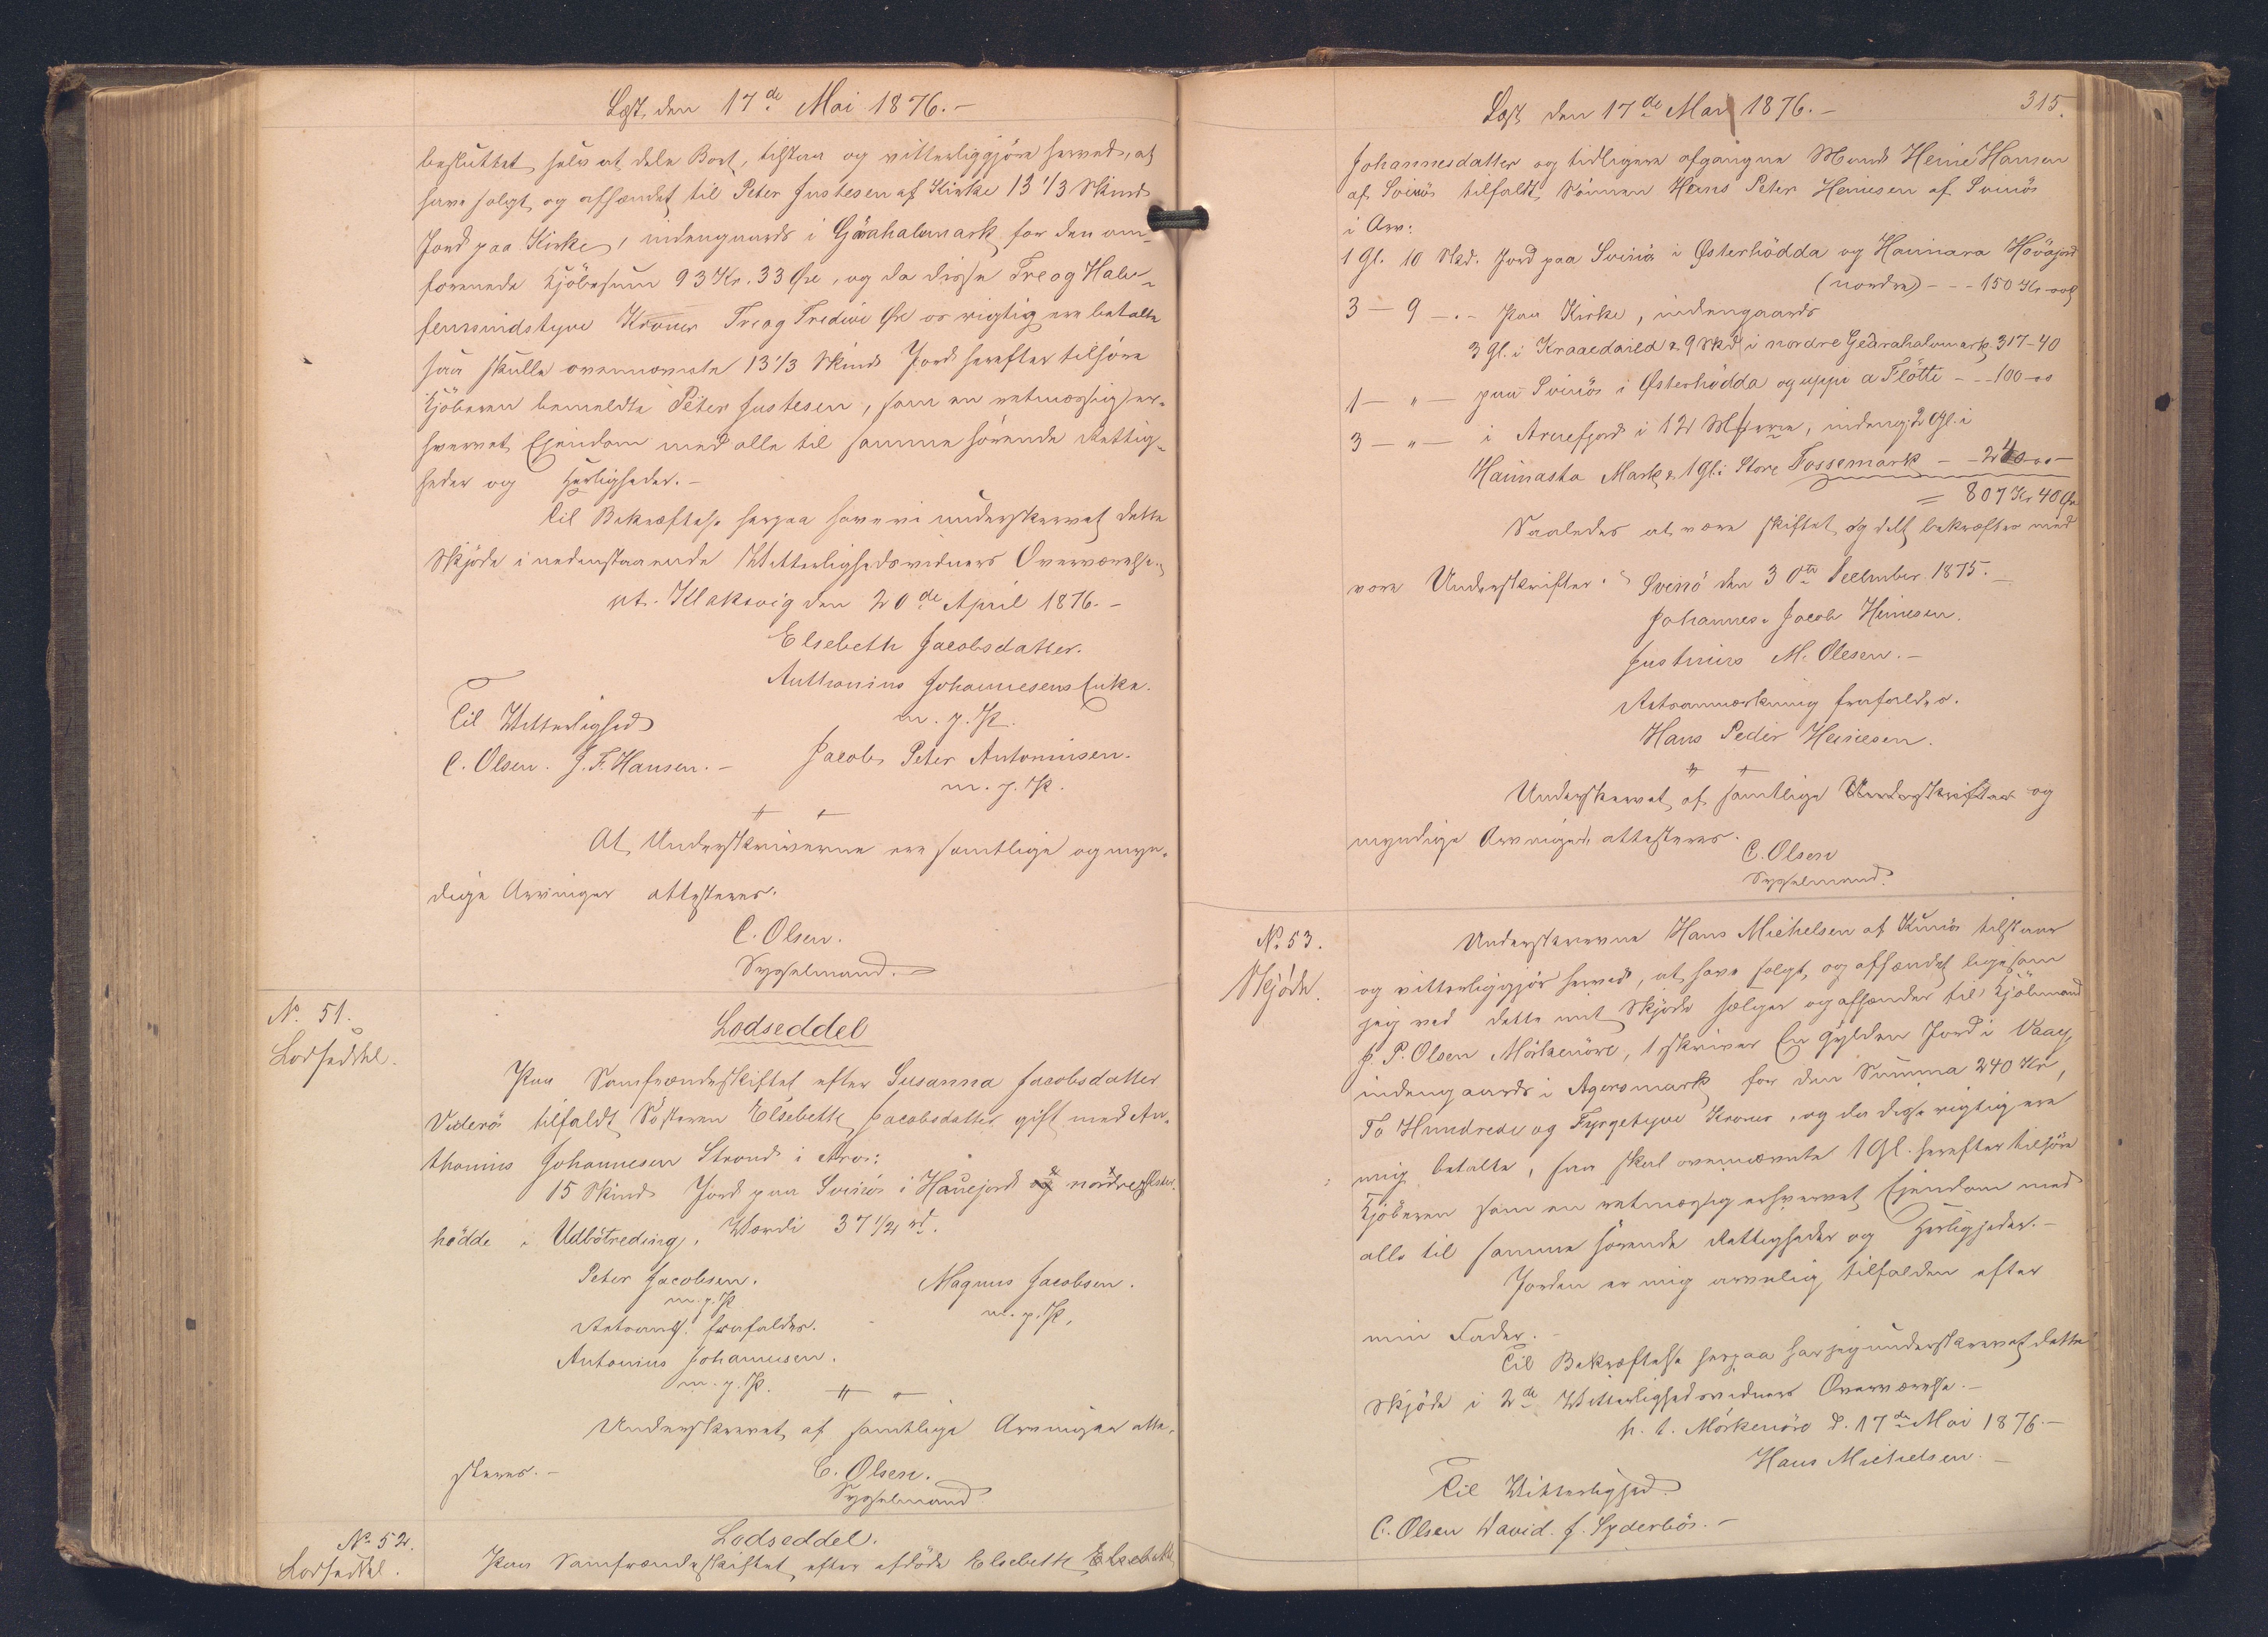 Læst den 17de Mai 1876.-
besluttet selv at dele Boet, tilstaa og vitterliggjøre herved, at
have solgt og afhændet til Peter Justesen af Kirke 13 1/3 Skind
Jord paa Kirke, indengaards i Gjørahalamark for den om-
forenede Kjöbesum 93 Kr. 33 Øre, og da disse Tre og Halv-
femsindstyve Kroner Tre og Tredive Øre os rigtig ere betalte
saa skulle ovennævnte 13 1/3 Skind Jord herefter tilhöre
Kjöberen bemeldte Peter Justesen, som en retmæssig er-
hvervet Ejendom med alle til samme hörende Rettig-
heder og Herligheder.-
Til Bekræftelse herpaa have vi underskrevet dette
Skjöde i nedenstaaende Vitterlighedsvidners Overværelse.
pt. Klaksvig den 20de April 1876.-
Elsebeth Jacobsdatter.
Anthonius Johannesens Enke.
m. f. P.
Til Vitterlighed
C. Olsen. J. F. Hansen.- Jacob Peter Antoniusen.
m. f. P.
At Underskriverne ere samtlige og myn-
dige Arvinger attesteres.
C. Olsen.
Sysselmand.
No. 51.
Lodseddel.
Lodseddel
Paa Samfrændeskiftet efter Susanna Jacobsdatter
Viderö tilfaldt Sösteren Elsebeth Jacobsdatter gift med An-
thonius Johannesen Strond i Arv:
15 Skind Jord paa Svinö i Hauejord og nordre Øster-
hødde i Udbötreding, Værdi 37 1/2 rd.
Peter Jacobsen. Magnus Jacobsen.
m. f. P. m. f. P.
Retsanm. frafaldes.
Antonius Johannesen.
m. f. P.
Underskrevet af samtlige Arvinger atte-
steres.- C. Olsen.
Sysselmand
No. 52.
Lodseddel.
Lodseddel.
Paa Samfrændeskiftet efter afdöde Elsebeth Elsebeth
Læst den 17de Mai 1876.- 315.
Johannesdatter og tidligere afgangne Mand Heine Hansen
af Svinö tilfaldt Sönnen Hans Peter Heinesen af Svinö
i Arv:
1 Gl. 10 Skd. Jord paa Svinö i Østerhödda og Hannara Hövajord
(nordre) - - - 150 Kr. 00
3 - 9 - . - paa Kirke, indengaards
3 Gl. i Kraaedaild & 9 Skd i nordre Gedrahalamark 317-40
1 - " - paa Svinös i Østerhödda og uppi a Flötti - - 100-00
3 - " - i Arnefjord i 12 M, indeng. 2 Gl. i
Haimasta Mark & 1 Gl. i Store Fossemark - - 240-00
= 807 Kr 40 Øre
Saaledes at være skiftet og delt bekræftes med
vore Underskrifter. Svinö den 30te December 1875.-
Johannes Jacob Heinesen.
Justinus M. Olesen.-
Retsanmærkning frafaldes.
Hans Peder Heinesen.
Underskrevet af samtlige Underskrifter og
myndige Arvinger attesteres.
C. Olsen
Sysselmand.
No. 53.
Skjöde.
Underskrevne Hans Michelsen af Kunö tilstaar
og vitterliggjör herved, at have solgt og afhændet ligesom
jeg ved dette mit Skjöde sælger og afhænder til Kjöbmand
J. P. Olsen Mörkenöre, 1, skriver En Gylden Jord i Vaag,
indengaards i Agersmark for den Summa 240 Kr,
To Hundrede og Fyrgetyve Kroner, og da disse rigtig ere
mig betalte, saa skal ovennævnte 1 Gl. herefter tilhöre
Kjöberen som en retmæssig erhvervet Ejendom med
alle til samme hörende Rettigheder og Herligheder.-
Jorden er mig arvelig tilfalden efter
min Fader.
Til Bekræftelse herpaa har jeg underskrevet dette
Skjöde i 2de Vitterlighedsvidners Overværelse.-
p. t. Mörkenöre d. 17de Mai 1876.-
Hans Michelsen.-
Til Vitterlighed
C. Olsen David. J. Syderbös.-